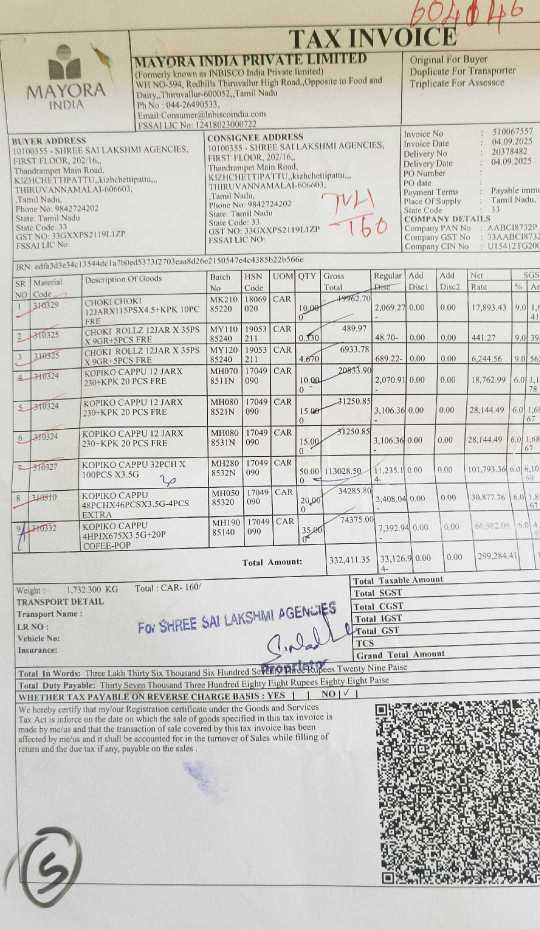 604046
TAX INVOICE
MAYORA
INDIA
MAYORA INDIA PRIVATE LIMITED
(Formerly known as INBISCO India Private limited)
WH NO-594, Redhills Thiruvallur High Road,,Opposite to Food and
Dairy,,Thiruvallur-600052,,Tamil Nadu
Ph No : 044-26490533,
Email:Consumer@Inbiscoindia.com
FSSAI LIC No: 12418023000722
Original For Buyer
Duplicate For Transporter
Triplicate For Assesce
BUYER ADDRESS
10100355 - SHREE SAI LAKSHMI AGENCIES,
FIRST FLOOR, 202/16,,
Thandrampet Main Road,
KIZHCHETTIPATTU,,kizhchetipattu,,,
THIRUVANNAMALAI-606603,
,Tamil Nadu,
Phone No: 9842724202
State: Tamil Nadu
State Code: 33
GST NO: 33GXXPS2119L1ZP
FSSAI LIC No:
CONSIGNEE ADDRESS
10100355 - SHREE SAI LAKSHMI AGENCIES,
FIRST FLOOR, 202/16,,
Thandrampet Main Road,
KIZHCHETTIPATTU,,kizhchetipattu,,,
THIRUVANNAMALAI-606603,
,Tamil Nadu,
Phone No: 9842724202
State: Tamil Nadu
State Code: 33
GST NO: 33GXXPS2119L1ZP
FSSAI LIC NO:
160
Invoice No : 510067557
Invoice Date : 04.09.2025
Delivery No : 20378482
Delivery Date : 04.09.2025
PO Number :
PO date :
Payment Terms : Payable imm
Place Of Supply : Tamil Nadu,
State Code : 33
COMPANY DETAILS
Company PAN No : AABCI8732P
Company GST No : 33AABCI873
Company CIN No : U15412TG20
SR NO Material Code Description Of Goods Batch No HSN Code UOM QTY Gross Total Regular Disc Add Disc1 Add Disc2 Net Rate SGS
1 310329 CHOKI CHOKI 12JARX115PSX4.5+KPK 10PC FRE MK210 85220 18069 020 CAR 10.000 19962.70 2,069.27 0.00 0.00 17,893.43 9.0
2 310325 CHOKI ROLLZ 12JAR X 35PS X 9GR+5PCS FRE MY110 85240 19053 211 CAR 0.330 489.97 48.70- 0.00 0.00 441.27 9.0
3 310325 CHOKI ROLLZ 12JAR X 35PS X 9GR+5PCS FRE MY120 85240 19053 211 CAR 4.670 6933.78 689.22- 0.00 0.00 6,244.56 9.0
4 310324 KOPIKO CAPPU 12 JARX 230+KPK 20 PCS FRE MH070 8511N 17049 090 CAR 10.000 20833.90 2,070.91 0.00 0.00 18,762.99 6.0
5 310324 KOPIKO CAPPU 12 JARX 230+KPK 20 PCS FRE MH080 8521N 17049 090 CAR 15.000 31250.85 3,106.36 0.00 0.00 28,144.49 6.0
6 310324 KOPIKO CAPPU 12 JARX 230+KPK 20 PCS FRE MH080 8531N 17049 090 CAR 15.000 31250.85 3,106.36 0.00 0.00 28,144.49 6.0
7 310327 KOPIKO CAPPU 32PCH X 100PCS X3.5G MH280 8532N 17049 090 CAR 50.000 113028.50 11,235.14- 0.00 0.00 101,793.36 6.0
8 310310 KOPIKO CAPPU 48PCHX46PCSX3.5G-4PCS EXTRA MH050 85320 17049 090 CAR 20.000 34285.80 3,408.04 0.00 0.00 30,877.76 6.0
9 310332 KOPIKO CAPPU 4HPJX675X3.5G+20P COFEE-POP MH190 85140 17049 090 CAR 35.000 74375.00 7,392.94 0.00 0.00 66,982.06 6.0
Total Amount: 332,411.35 33,126.94- 0.00 0.00 299,284.41
Weight : 1,732.300 KG Total : CAR- 160/
TRANSPORT DETAIL
Transport Name :
LR NO :
Vehicle No:
Insurance:
For SHREE SAI LAKSHMI AGENCIES
Proprietor
Total Taxable Amount
Total SGST
Total CGST
Total IGST
Total GST
TCS
Grand Total Amount
Total In Words: Three Lakh Thirty Six Thousand Six Hundred Seventy Three Rupees Twenty Nine Paise
Total Duty Payable: Thirty Seven Thousand Three Hundred Eighty Eight Rupees Eighty Eight Paise
WHETHER TAX PAYABLE ON REVERSE CHARGE BASIS : YES | | NO | ✓ |
We hereby certify that my/our Registration certificate under the Goods and Services
Tax Act is inforce on the date on which the sale of goods specified in this tax invoice is
made by me/us and that the transaction of sale covered by this tax invoice has been
affected by me/us and it shall be accounted for in the turnover of Sales while filling of
return and the due tax if any, payable on the sales .
5